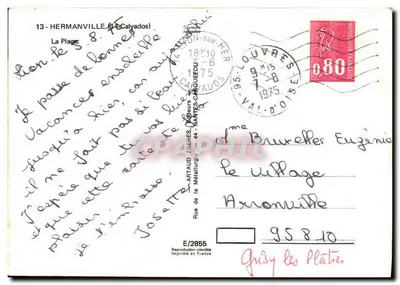 13 - HERMANVILLE (14 Calvados)
La Plage
Lion le 5.8.75
Je passe de bonnes
Vacances ensoleillée
jusqu'a hier, car aujourd'hui
il ne fait pas si beau
J'espère que tu vas bien
et que cette carte te fera
plaisir.
Je t'embrasse
Josette
LION-SUR-MER
18H30
-6
1975
CALVADOS
95 LOUVRES
9H15
7-8
1975
VAL-D'OISE
0,80
ARTAUD FRERES, Editeurs
Rue de la Métallurgie, 44 NANTES-CARQUEFOU
Mme Bruxelles Eugénie
Le Village
Arronville
95810
Grisy les Plâtres
E/2855
Reproduction interdite
Imprimé en France